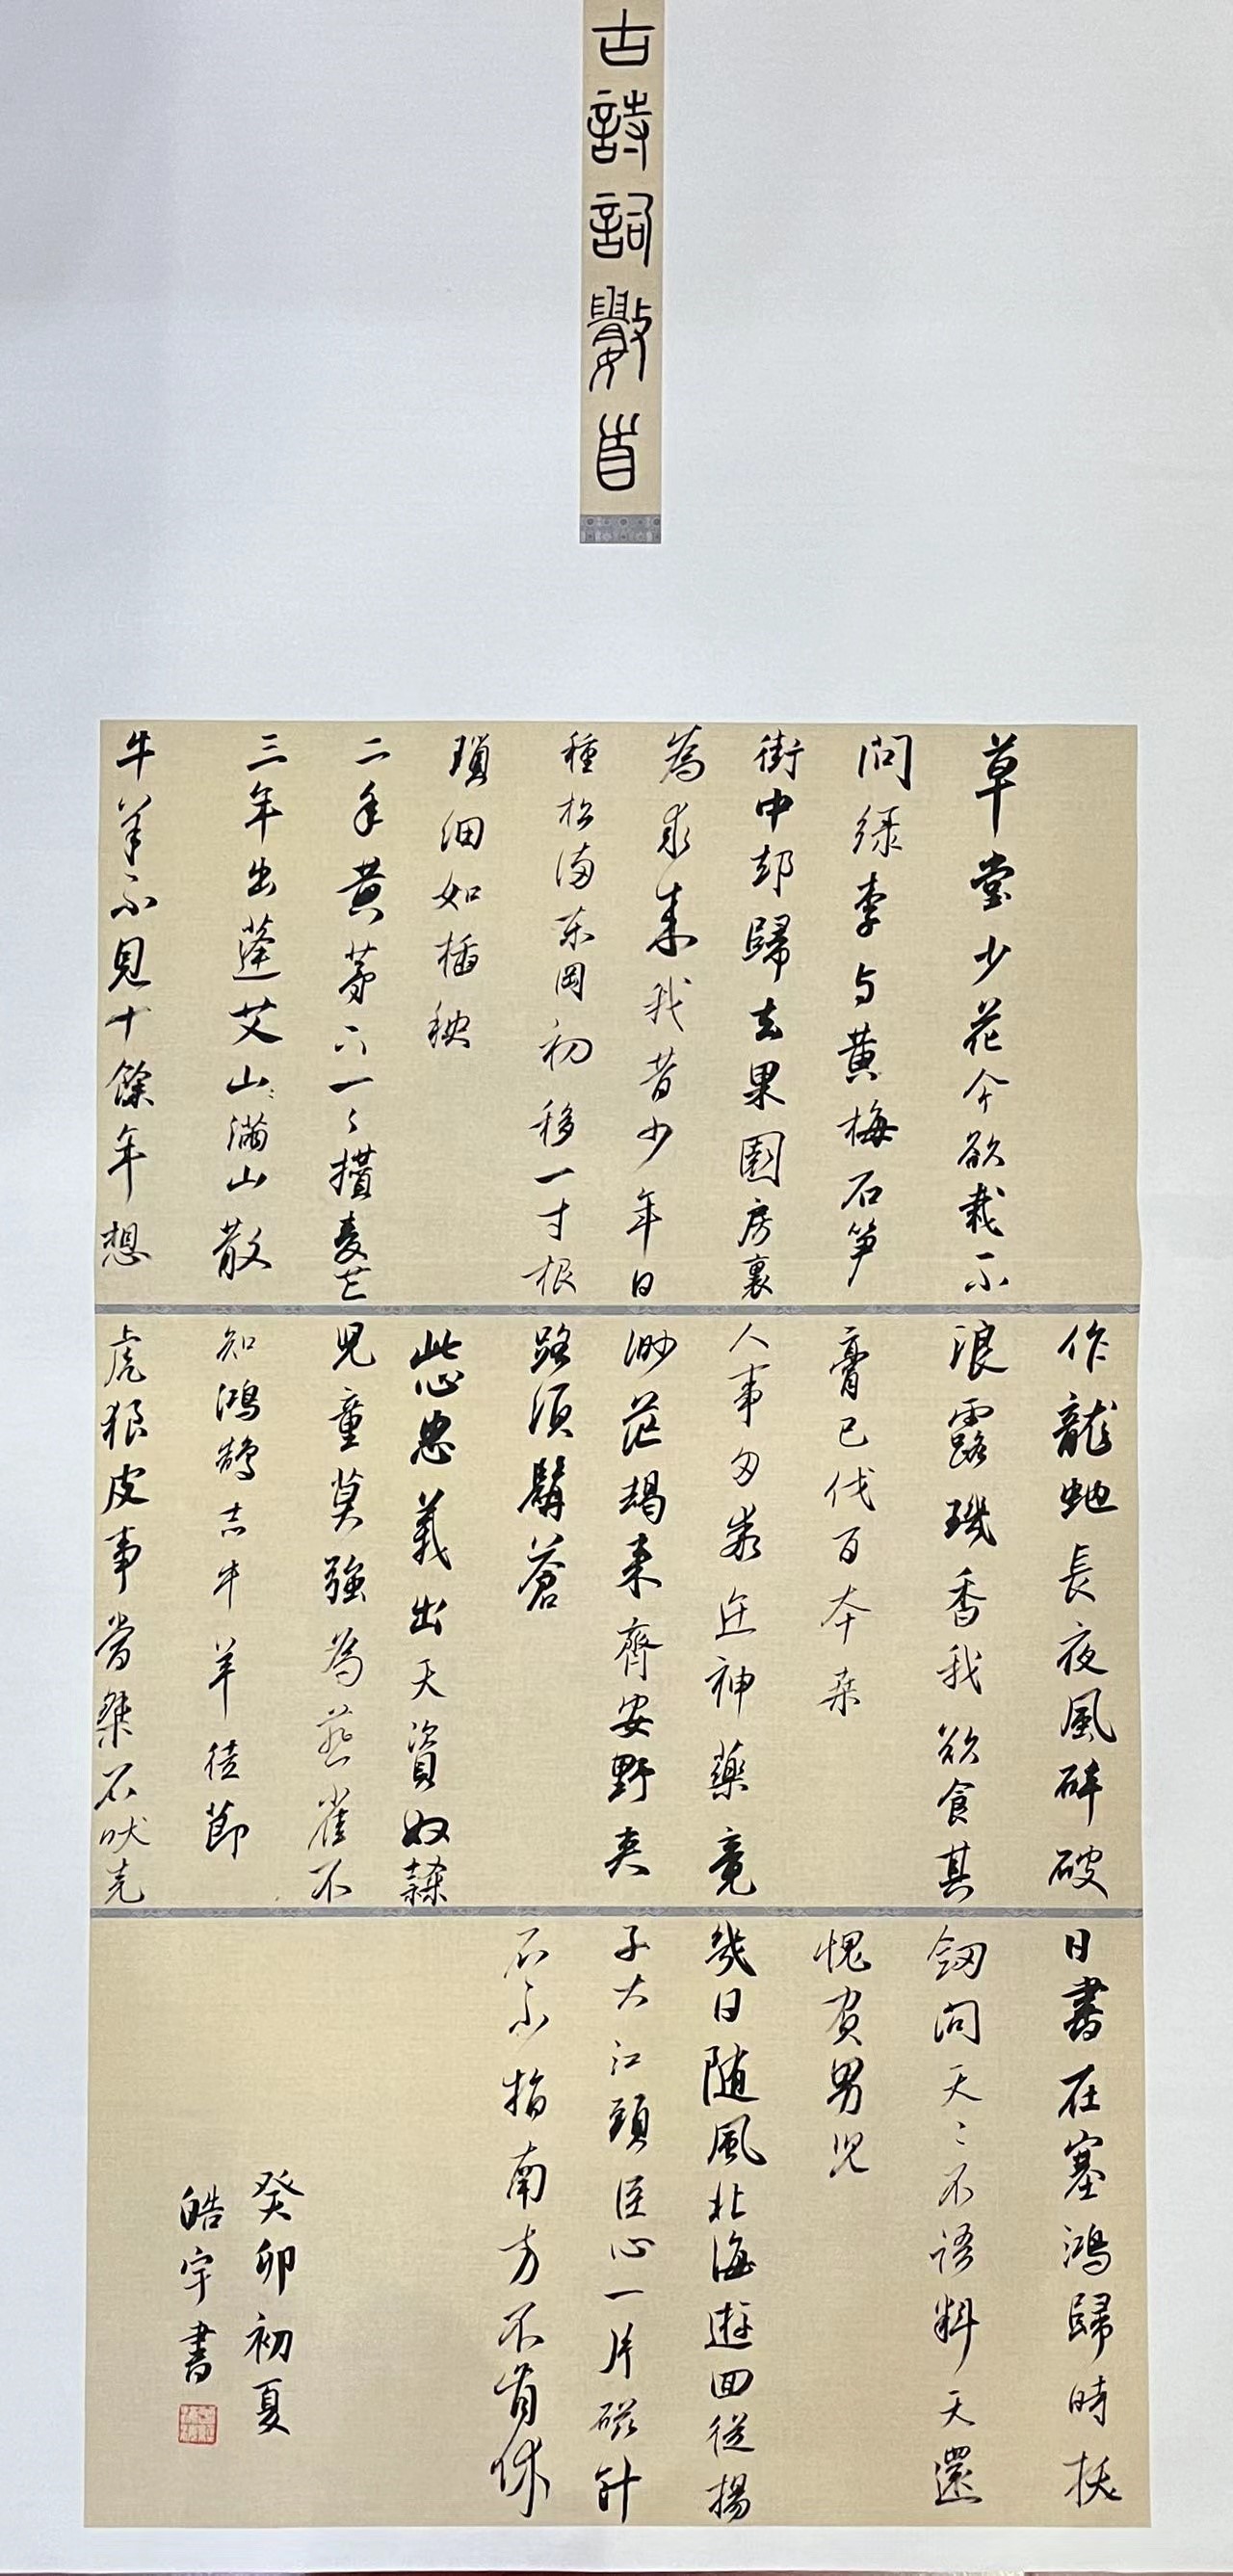 古詩詞數首
草堂少花今欲栽不
問綠李与黃梅石笋
街中却歸去果園房裏
為求来我昔少年日
種松滿东岡初移一寸根
瑣細如插秧
二年黃茅下一々攢麦芒
三年出蓬艾山々滿山散
牛羊不見十餘年想
作龍虵長夜風碎破
浪露璣香我欲食其
膏已伐百本桑
人事多乖迕神藥竟
渺茫朅来齊安野夾
路須髯蒼
此心忠義出天資奴隸
児童莫強為燕雀不
知鴻鵠志牛羊徒節
虎狼皮事當桀不吠尭
日書在塞鴻歸時抚
劒问天々不語料天還
愧負男児
幾日随風北海遊回從揚
子大江頭臣心一片磁針
石不指南方不肯休
癸卯初夏
皓宇書